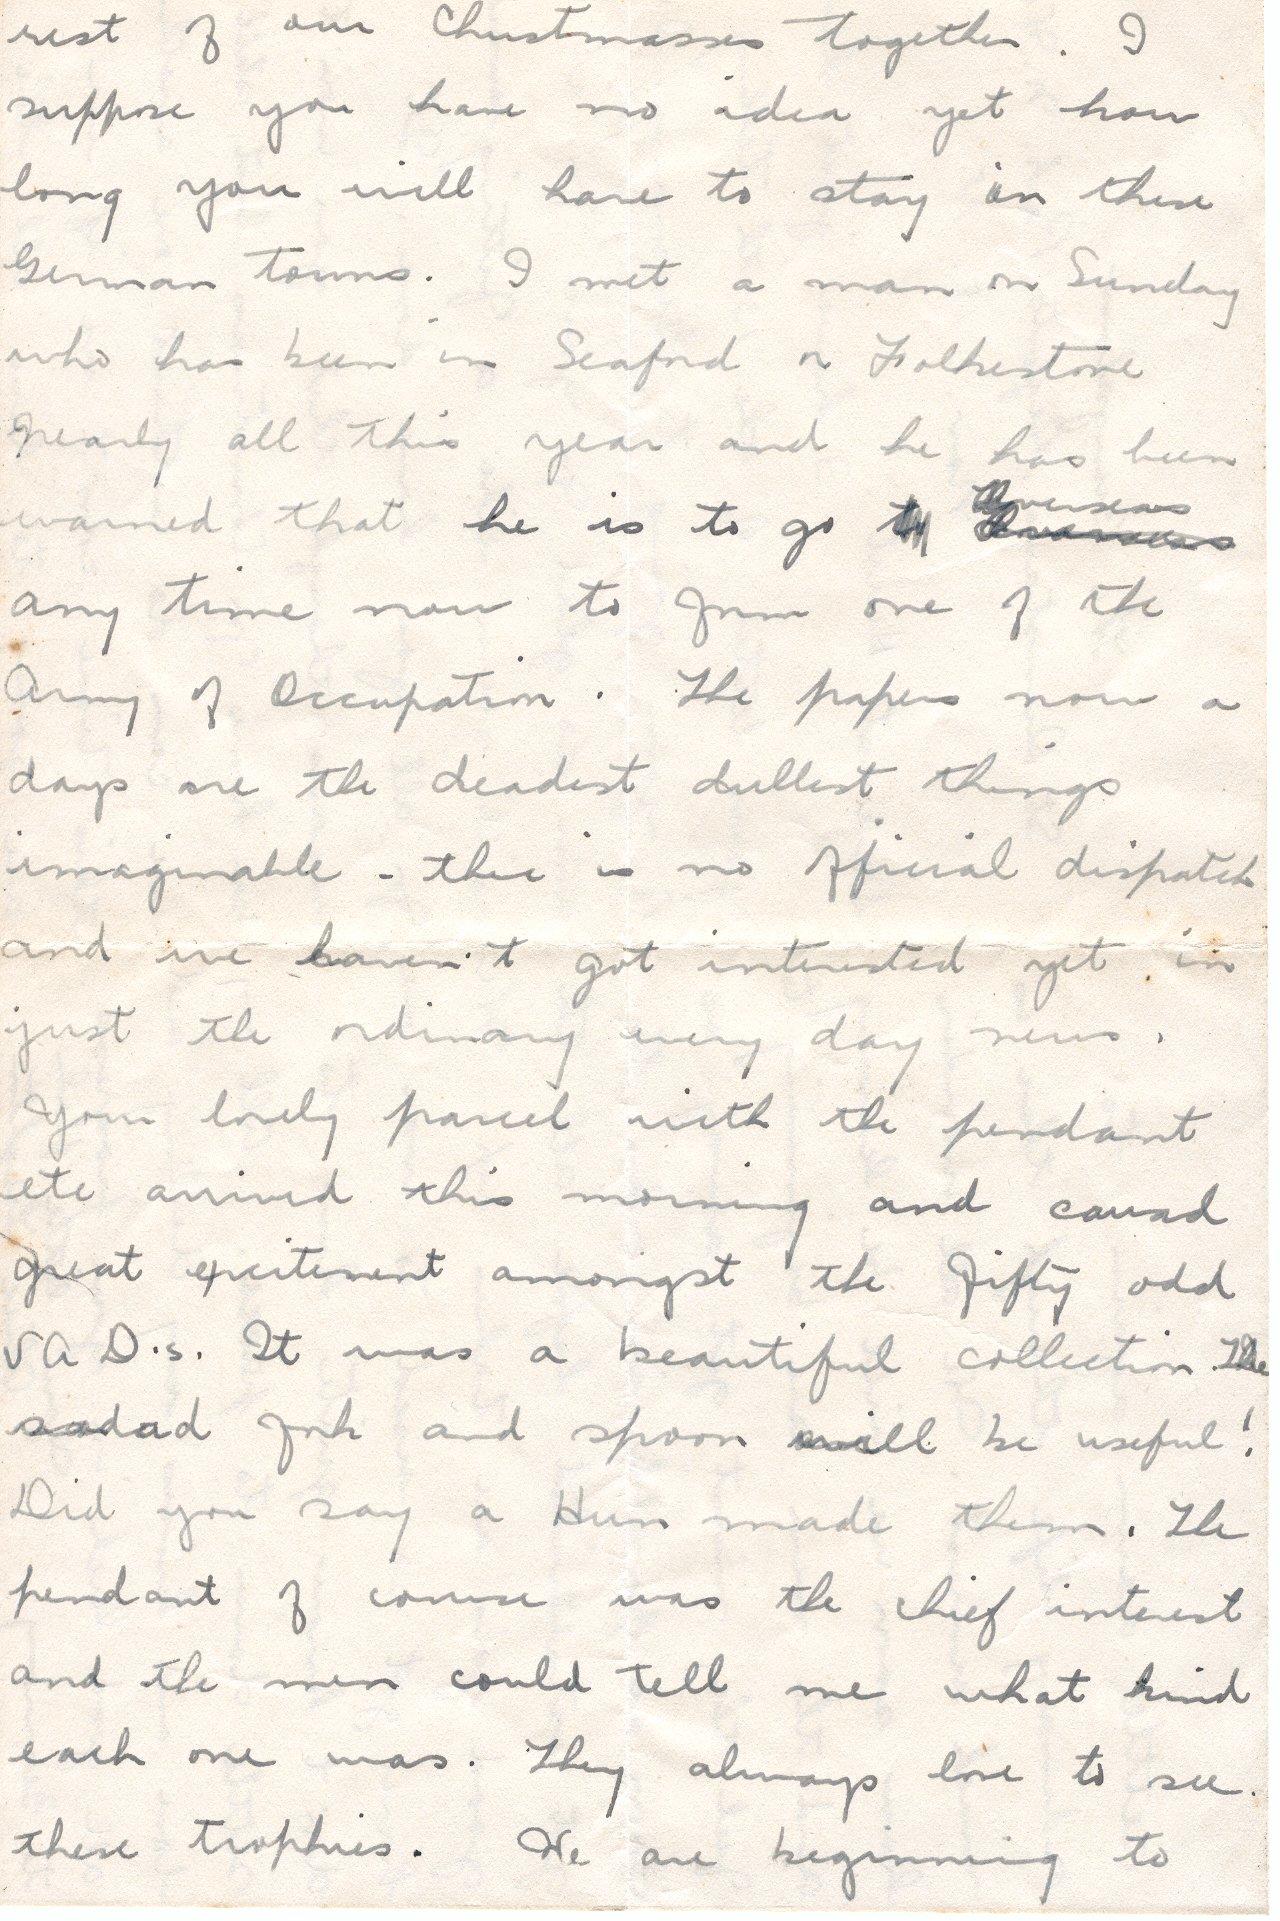 rest of our Christmasses together. I
suppose you have no idea yet how
long you will have to stay in these
German towns. I met a man on Sunday
who has been in Seaford or Folkestone
nearly all this year and he has been
warned that he is to go Overseas
any time now to form one of the
Army of Occupation. The papers now a
days are the deadest dullest things
imaginable - there is no official dispatch
and we haven't got interested yet in
just the ordinary every day news.
Your lovely parcel with the pendant
etc arrived this morning and caused
great excitement amongst the fifty odd
V A D.s. It was a beautiful collection. The
salad fork and spoon will be useful!
Did you say a Hun made them. The
pendant of course was the chief interest
and the men could tell me what kind
each one was. They always love to see
these trophies. We are beginning to